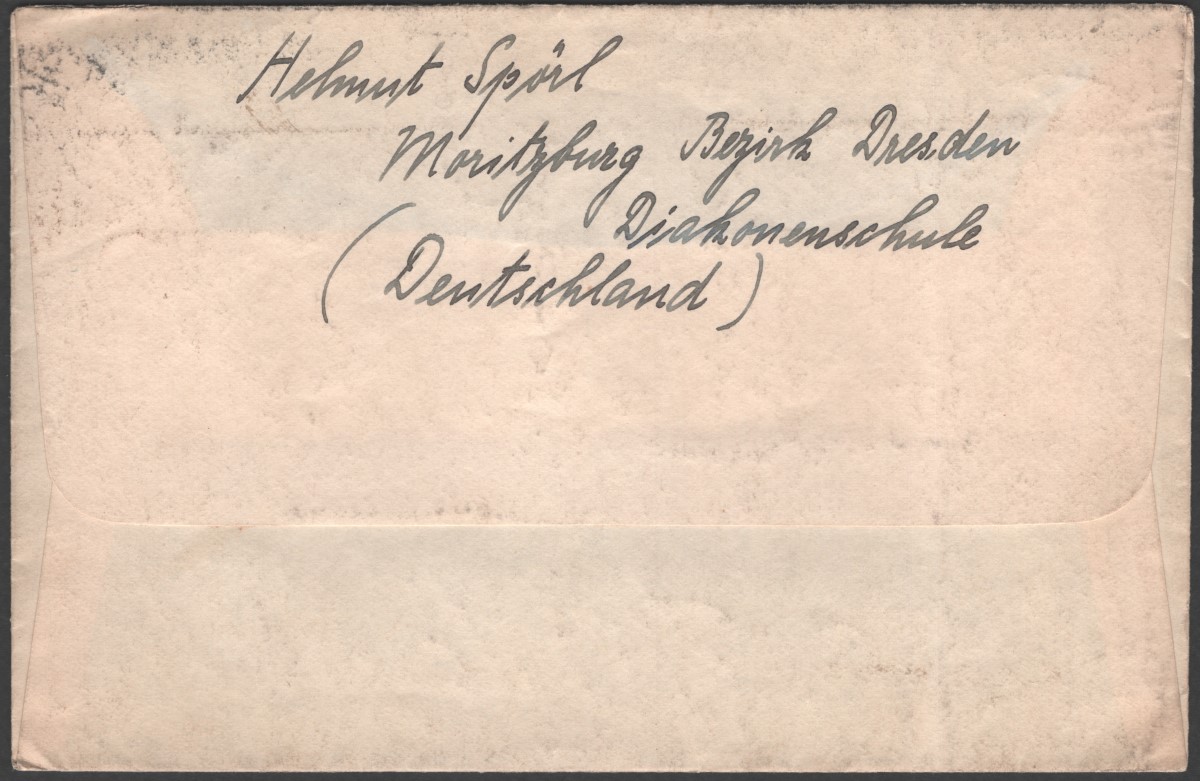 Helmut Spörl
Moritzburg Bezirk Dresden
Diakonenschule
(Deutschland)